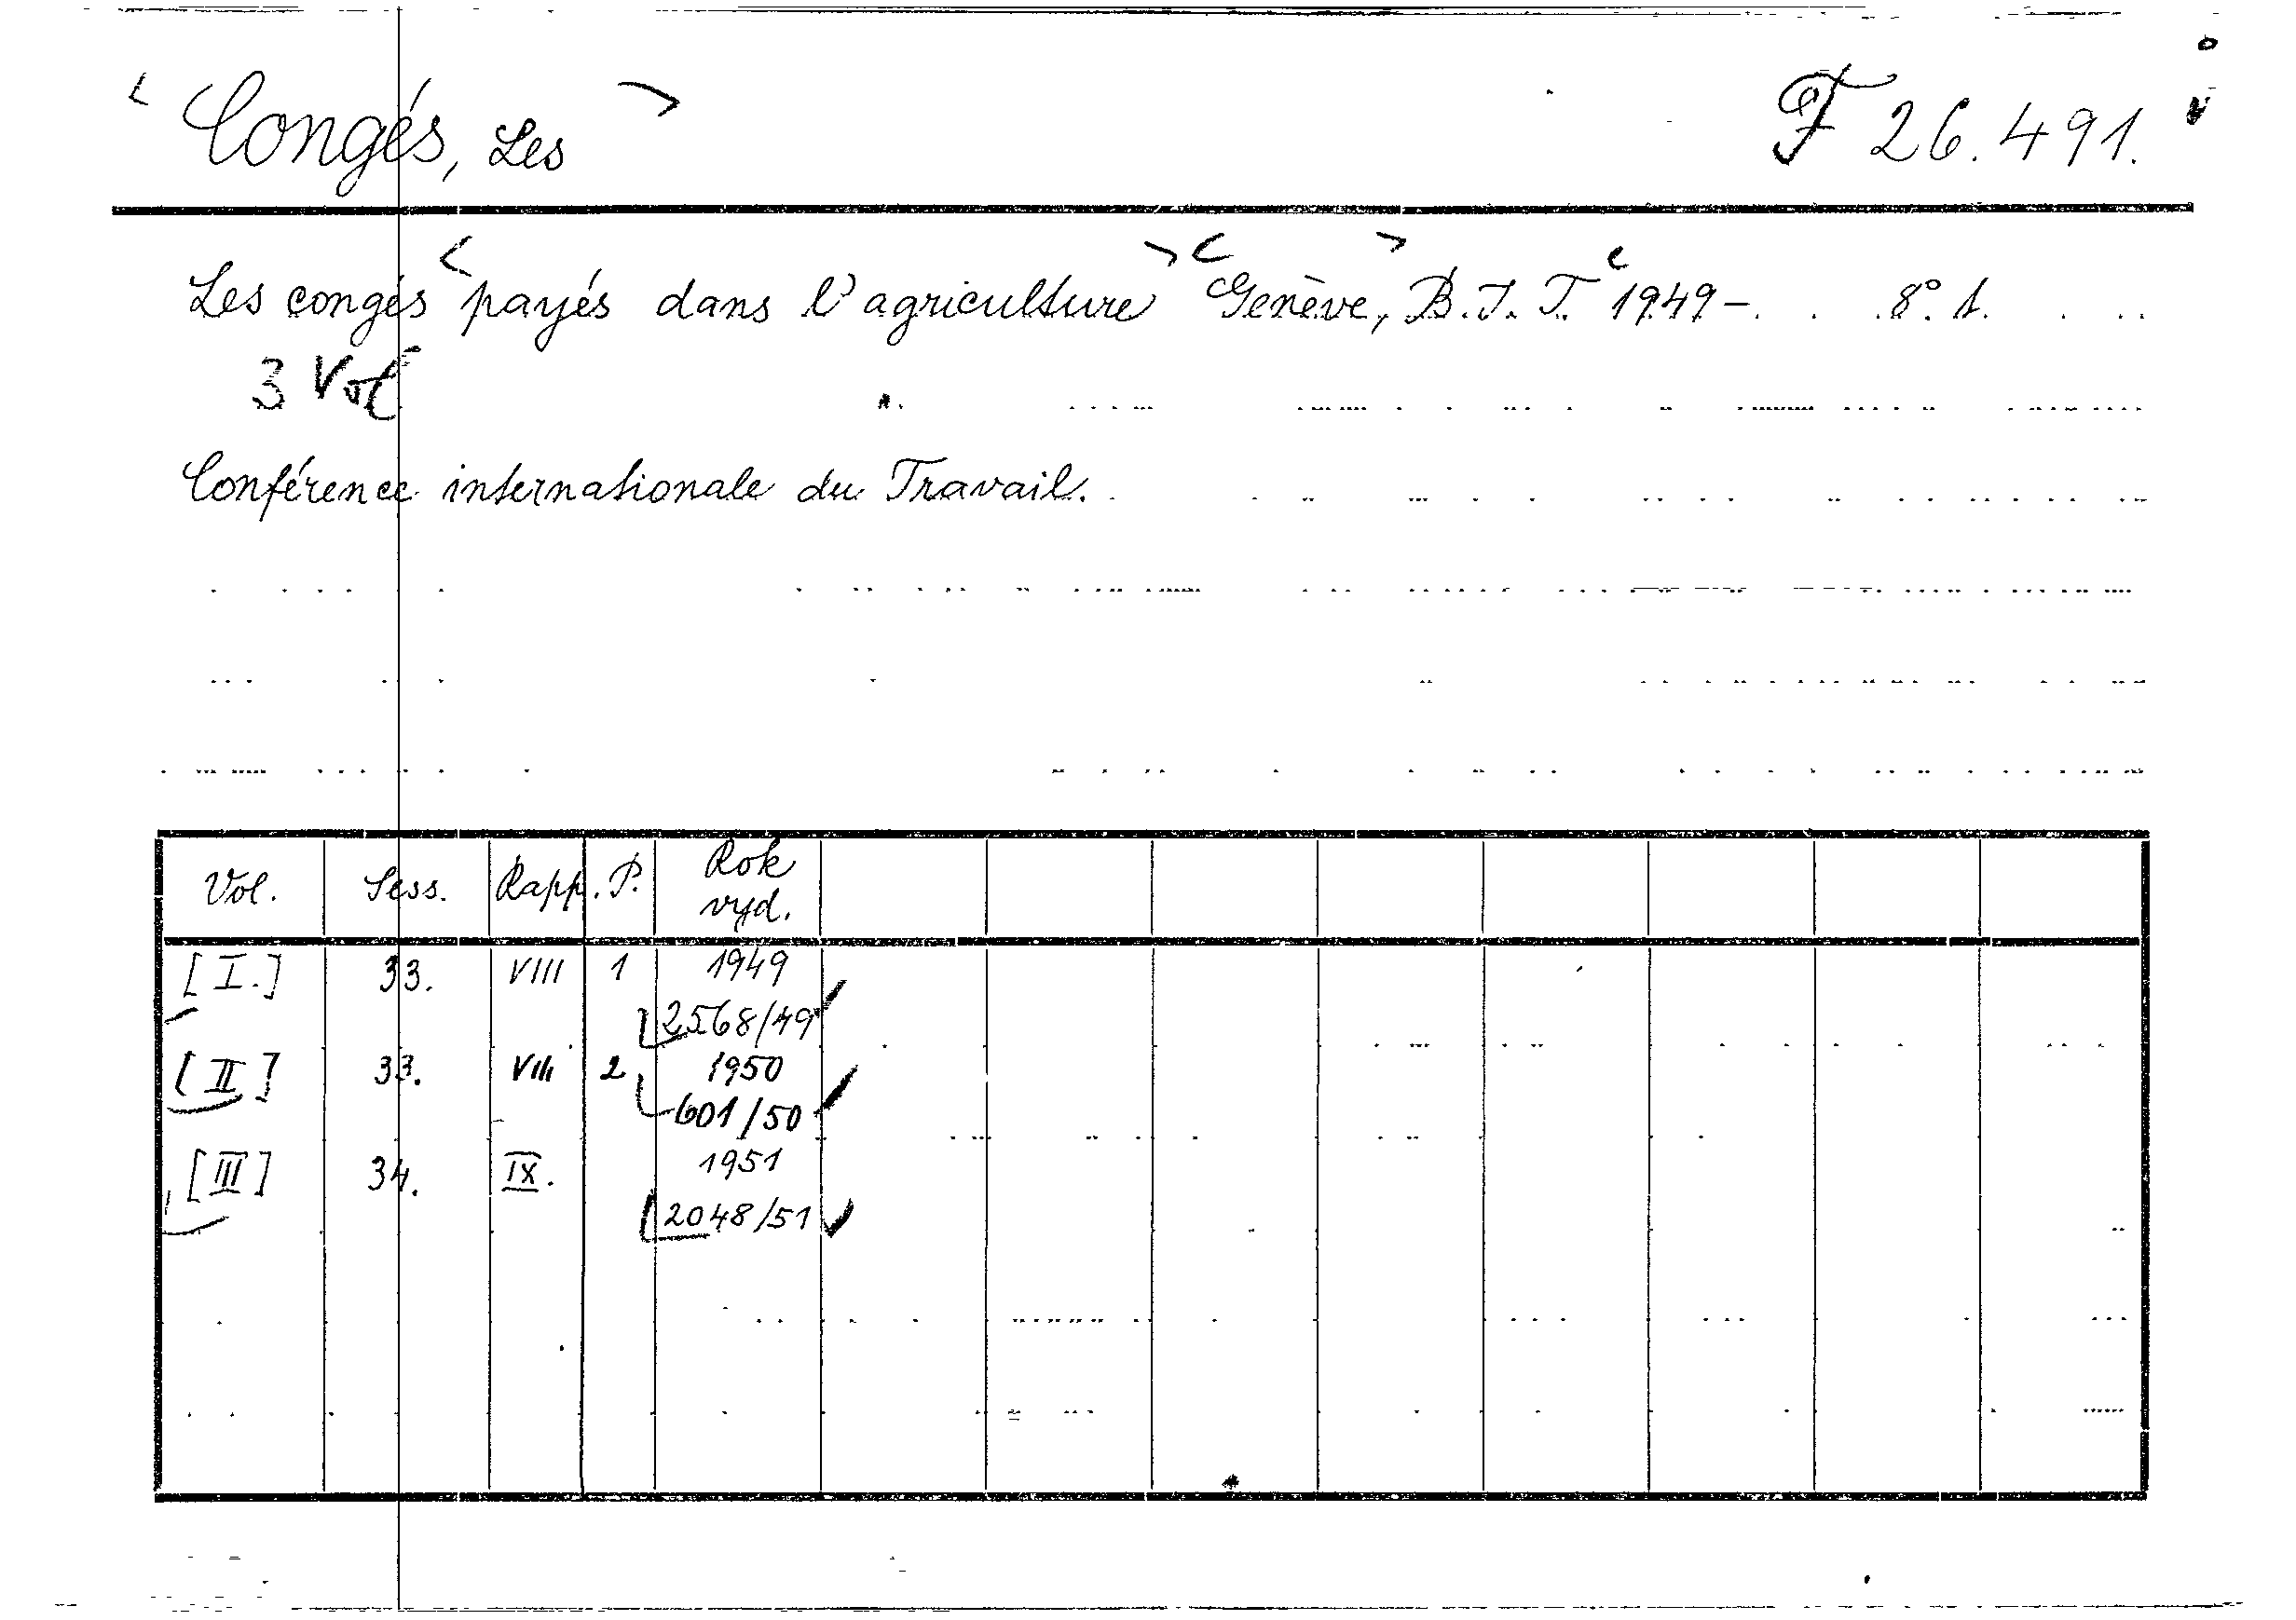 Congés, Les F 26.491.
Les congés payés dans l'agriculture Genève, B.I.T. 1949-. 8°. 1.
3 Vol
Conférence internationale du Travail.
Vol. Sess. Rapp. P. Rok vyd.
[I.] 33. VIII 1 1949
2568/49
[II] 33. VIII 2 1950
601/50
[III] 34. IX. 1951
2048/51